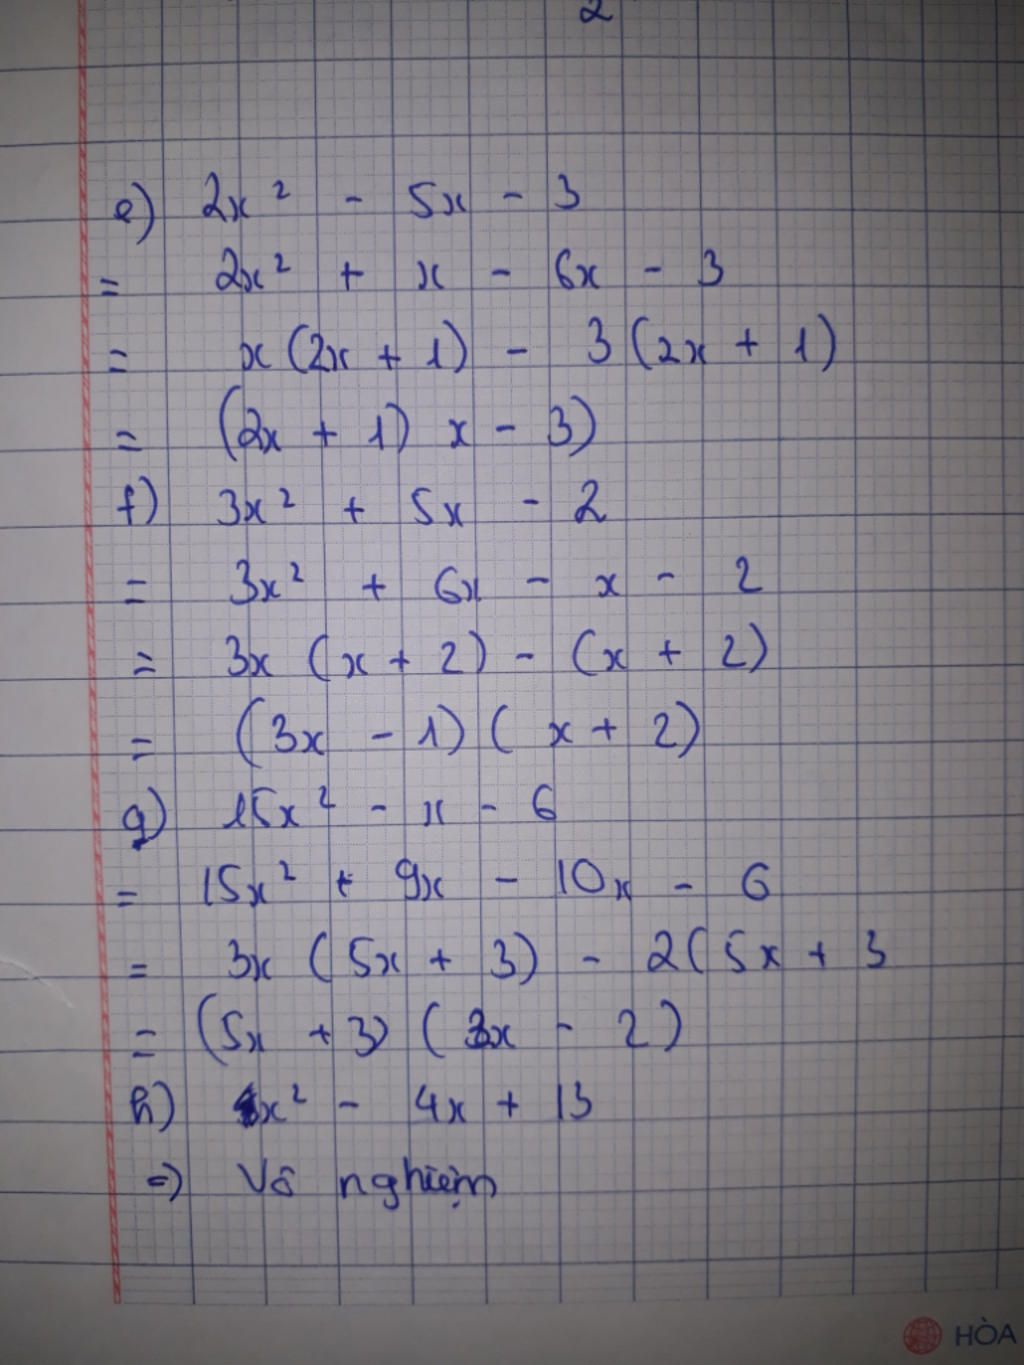 2
e) 2x² - 5x - 3
= 2x² + x - 6x - 3
= x(2x + 1) - 3(2x + 1)
= (2x + 1) x - 3)
f) 3x² + 5x - 2
= 3x² + 6x - x - 2
= 3x (x + 2) - (x + 2)
= (3x - 1)( x + 2)
g) 15x² - x - 6
= 15x² + 9x - 10x - 6
= 3x (5x + 3) - 2(5x + 3
= (5x + 3) (3x - 2)
h) x² - 4x + 13
=> Vô nghiệm
HÒA